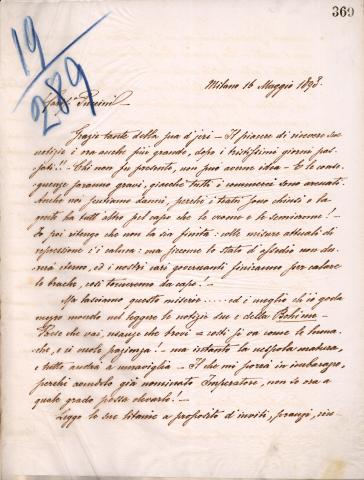 369
19
289
Milano 16 Maggio 1898.
Car.º Puccini
Grazie tante della sua d'jeri – Il piacere di ricevere sue
notizie è ora anche più grande, dopo i tristissimi giorni pas-
sati!! – Chi non fu presente, non può averne idea – E le conse-
guenze saranno gravi, giacchè tutti i commerci sono arenati.
Anche noi sentiamo danni, perchè i teatri sono chiusi e la
gente ha tutt'altro pel capo che le crome e le semicrome! –
Io poi ritengo che non la sia finita: colle misure attuali di
repressione s'è calmata: ma siccome lo stato d'assedio non du-
rerà eterno, ed i nostri cari governanti finiranno per calare
le brache, così torneremo da capo! –
Ma lasciamo queste miserie ..... ed è meglio ch'io goda
mezzo mondo nel leggere le notizie sue e della Bohème –
Paese che vai, usanze che trovi = costì si va come le luma-
che, e ci vuole pazienza! – ma intanto la nespola matura,
e tutto andrà a meraviglia – Il che mi forza in imbarazzo,
perchè avendolo già nominato Imperatore, non so ora a
quale grado possa elevarlo! –
Leggo le sue litanie a proposito d'inviti, pranzi, vin-